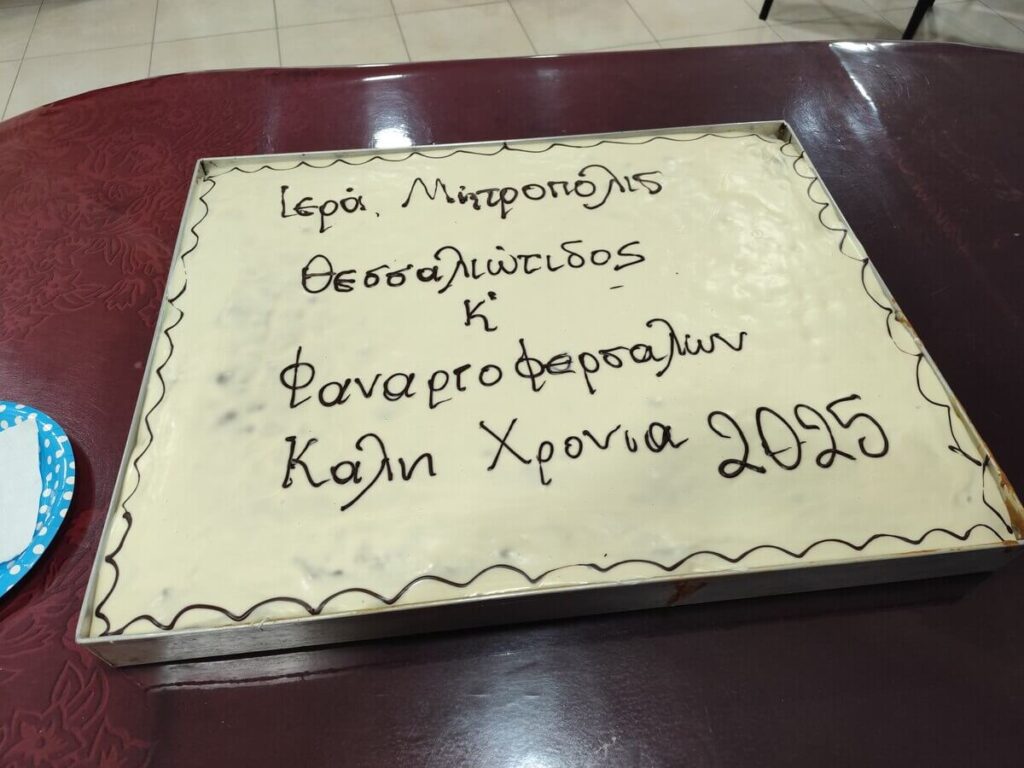 Ιερά. Μητροπόλις
Θεσσαλιώτιδος
Κ'
Φαναριοφερσαλων
Καλη Χρονια 2025